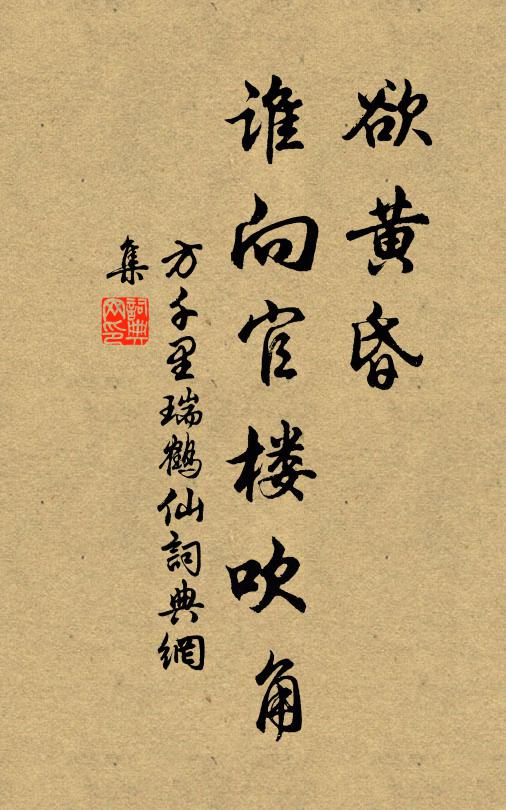 欲黄昏
谁向官楼吹角
方千里瑞鹤仙詞典網
集
詞典網印